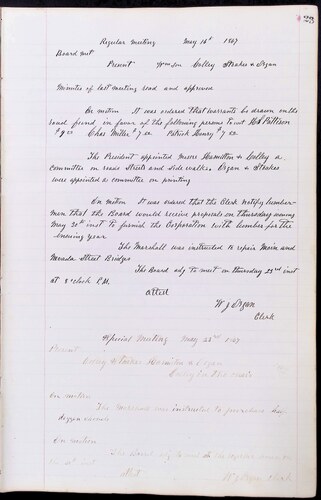 23
Regular Meeting May 16th 1867
Board met
Present Colley Straker & Organ
Minutes of last meeting read and approved
On motion It was ordered that warrants be drawn on the
road fund in favor of the following persons to wit Pattison
$9.00 Chas Miller $7.00 Patrick Henry $7.00
The President appointed Messrs Hamilton & Colley a
committee on roads Streets and Side walks Organ & Straker
were appointed a committee on printing
On motion It was ordered that the Clerk notify lumber-
men that the Board would receive proposals on thursday evening
May 30th inst to furnish the Corporation with lumber for the
ensuing year
The Marshall was instructed to repair Main and
Nevada Street Bridges
The Board adj to meet on thursday 23rd inst
at 8 oclock P.M.
attest
W J Organ
Clerk
Special Meeting May 1867
Present
Colley Straker Hamilton & Organ
Colley in the chair
On motion
The Marshall was instructed to purchase
On motion
The Board adj to meet
inst
Attest W J Organ Clerk